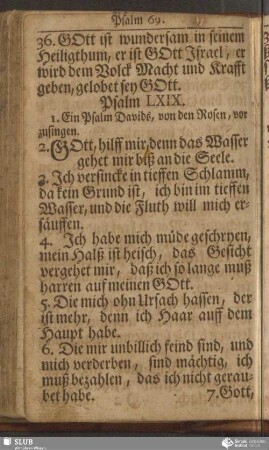 Psalm 69.
36. GOtt ist wundersam in seinem
Heiligthum, er ist GOtt Israel, er
wird dem Volck Macht und Krafft
geben, gelobet sey GOtt.
Psalm LXIX.
1. Ein Psalm Davids, von den Rosen, vor
zusingen.
2. GOtt, hilff mir, denn das Wasser
gehet mir biß an die Seele.
3. Ich versincke in tieffen Schlamm,
da kein Grund ist, ich bin im tieffen
Wasser, und die Fluth will mich er-
säuffen.
4. Ich habe mich müde geschryen,
mein Halß ist heisch, das Gesicht
vergehet mir, daß ich so lange muß
harren auf meinen GOtt.
5. Die mich ohn Ursach hassen, der
ist mehr, denn ich Haar auff dem
Haupt habe.
6. Die mir unbillich feind sind, und
mich verderben, sind mächtig, ich
muß bezahlen, das ich nicht gerau-
bet habe. 7. Gott,
SLUB